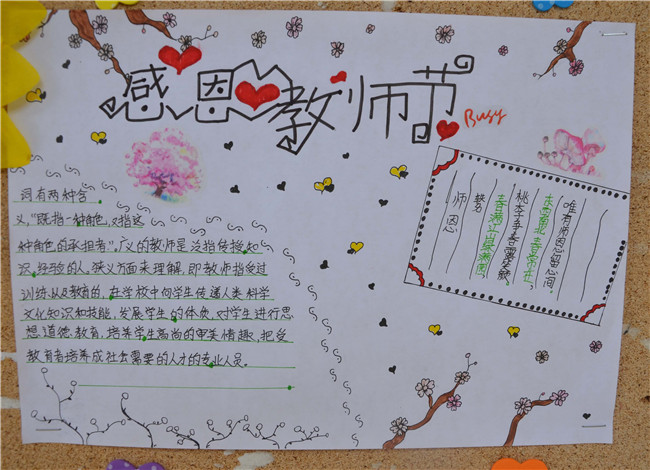 感恩教师节
Busy
词有两种含
义，“既指一种角色，又指这
种角色的承担者”，广义的教师是泛指传授知
识，经验的人，狭义方面来理解，即教师指受过
训练以及教育的，在学校中向学生传递人类科学
文化知识和技能，发展学生的体质，对学生进行思
想道德教育，培养学生高尚的审美情趣，把受
教育者培养成社会需要的人才的专业人员。
师恩
桃李争春露笑颜，
唯有师恩留心间。